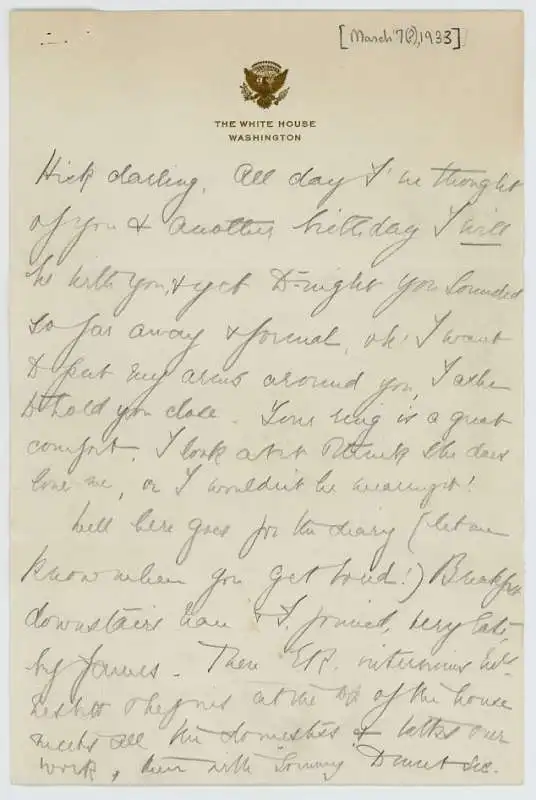 [March 7(?), 1933]
THE WHITE HOUSE
WASHINGTON
Hick darling, All day I've thought
of you & another birthday I will
be with you, & yet to-night you sounded
so far away & formal, oh! I want
to put my arms around you, I ache
to hold you close. Your ring is a great
comfort. I look at it & think she does
love me, or I wouldn't be wearing it!
Well here goes for the diary (let me
know when you get bored!) Breakfast
downstairs & I. joined, very late,
by James. Then E.R. interviews
Nesbitt & begins at the top of the house
meets all the domestics & talks over
work, then with Tommy